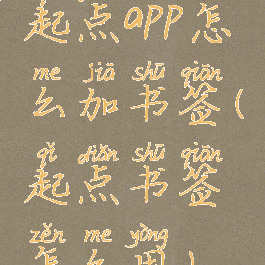 起点app怎
me jiā shū qiān
么加书签(
qǐ diǎn shū qiān
起点书签
zěn me yòng
怎么用)